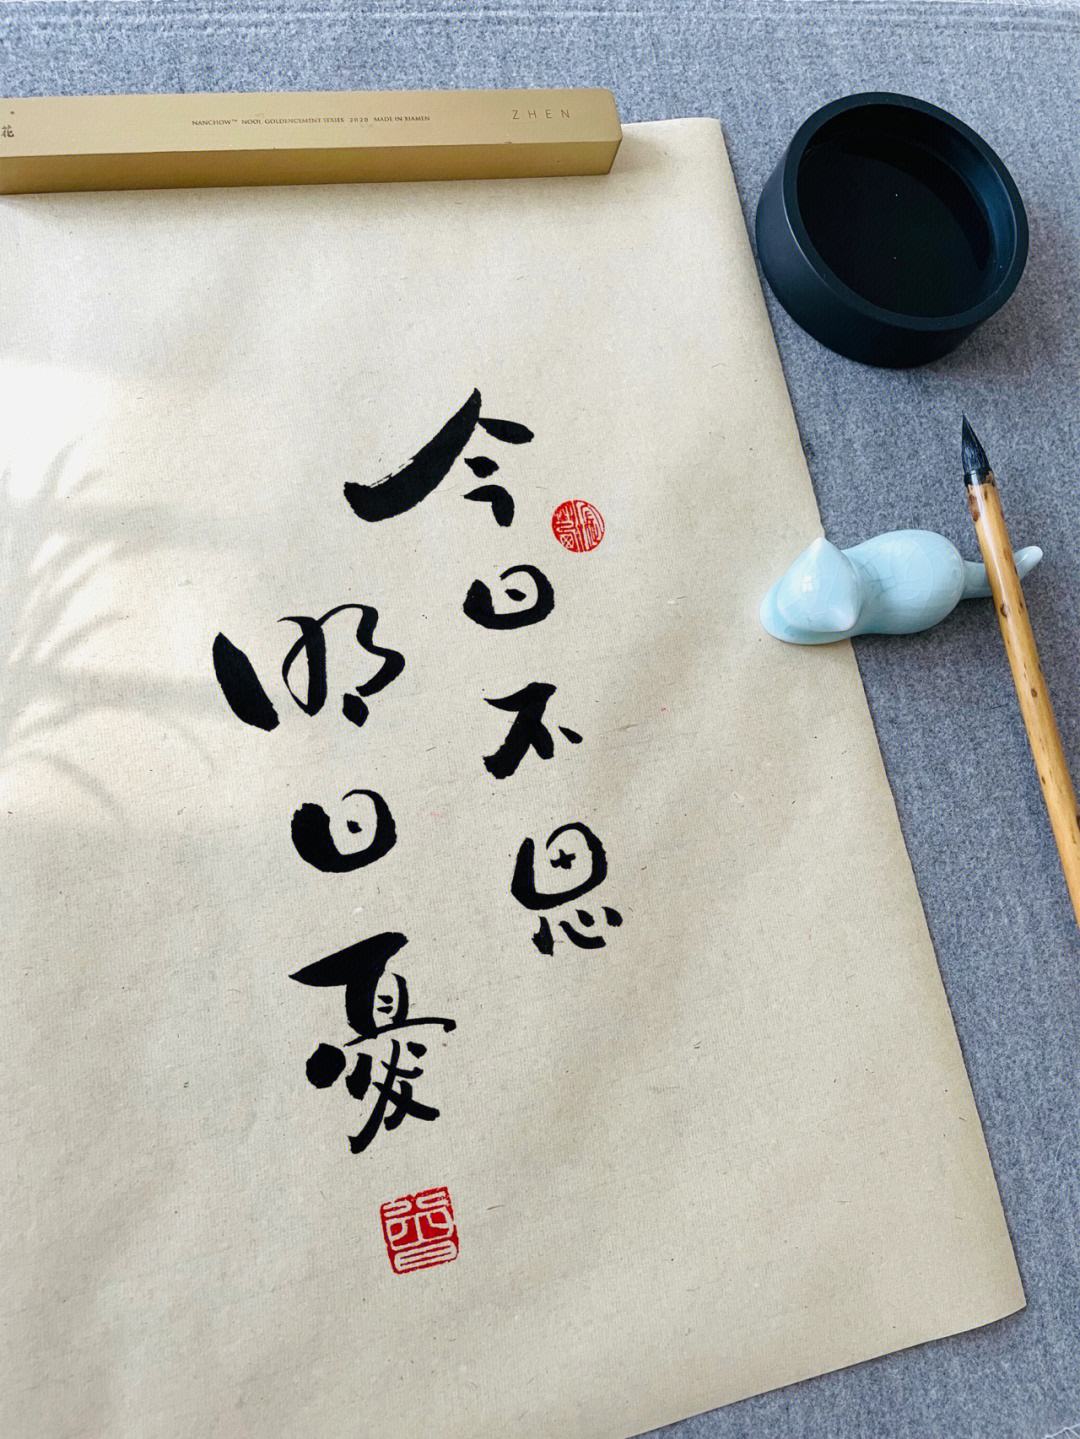 今日不思
明日憂
花
NANCHOW™ NOOL GOLDENCEMENT SERIES 2020 MADE IN XIAMEN
ZHEN